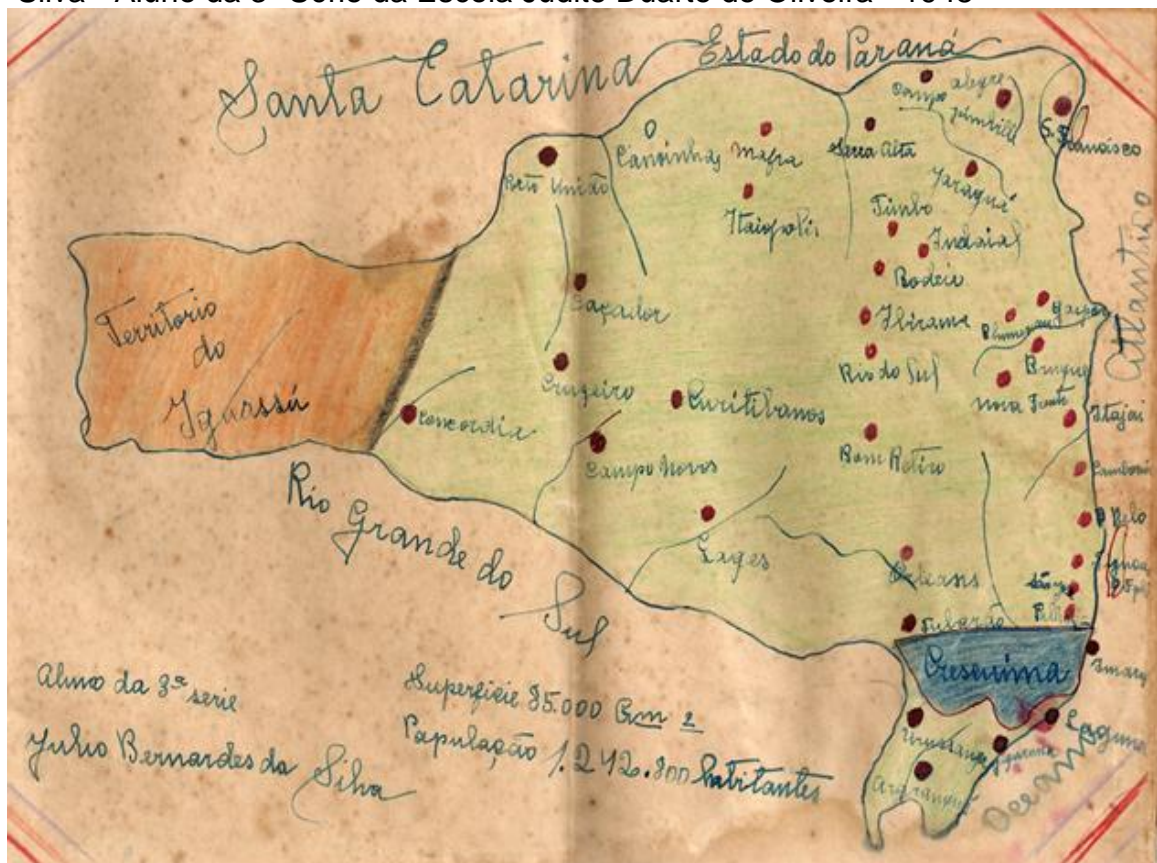 Silva - Aluno da 3ª Série da Escola Judite Duarte de Oliveira -
Santa Catarina
Estado do Paraná
Campo alegre
Joinville
S. Francisco
Canoinhas
Mafra
Serra Alta
Porto União
Itaiopolis
Jaraguá
Timbo
Indaial
Rodeio
Territorio
do
Iguassú
Caçador
Ibirama
Blumenau
Gaspar
Atlantico
Cruzeiro
Rio do Sul
Brusque
Nova Trento
Concordia
Curitibanos
Itajai
Campo Novos
Bom Retiro
Camboriú
Rio Grande do Sul
P. Belo
Lages
Tijucas
Orleans
Tubarão
Cresciuma
Imaruy
Laguna
Urussanga
Jaguaruna
Araranguá
Oceano
Aluno da 3ª serie
Julio Bernardes da Silva
Superficie 85.000 Km 2
Papulação 1.242.800 habitantes